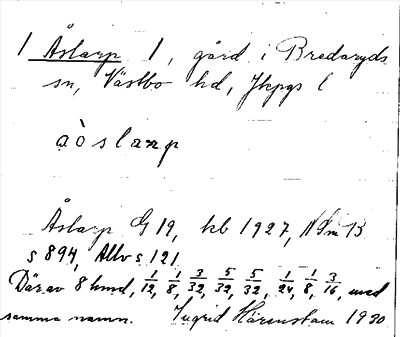 1 Åslarp 1, gård i Bredaryds
sn, Västbo hd, Jkpgs l
ạòslanp
Åslarp G 19, kb 1927, NSm B
s 894, Allv s. 121.
Därav 8 hmd, 1/12, 1/8, 3/32, 5/32, 5/32, 1/24, 1/8, 3/16, med
samma namn. Ingrid Härenstam 1930